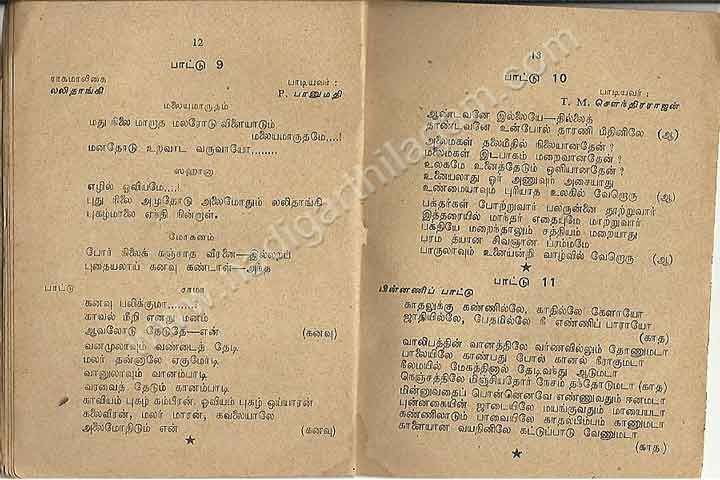 12
பாட்டு 9
ராகமாலிகை
பாடியவர் :
லலிதாங்கி
P. பானுமதி
மலையமாருதம்
மது நிலை மாறாத மலரோடு விளையாடும்
மலையமாருதமே,...!
மனதோடு உறவாட வருவாயோ........
ஸஹானா
எழில் ஓவியமே...!
புது நிலை அமுதோடு அலைமோதும் லலிதாங்கி
புகழ்மாலை ஏந்தி நின்றாள்.
மோகனம்
போர் நிலைக் கஞ்சாத வீரனை—தில்லறப்
புதையலாய் கனவு கண்டாள்—அந்த
பாட்டு
சாமா
கனவு பலிக்குமா........
காவல் மீறி எனது மனம்
ஆவலோடு தேடுதே—என் (கனவு)
வனமுலாவும் வண்டைத் தேடி
மலர் தன்னாலே ஏகுமோடி
வானுலாவும் வானம்பாடி
வரவைத் தேடும் கானம்பாடி
காவியம் புகழ் கம்பீரன். ஓவியம் புகழ் ஒய்யாரன்
கலைவீரன், மலர் மாரன், கவலையாலே
அலைமோதிடும் என் (கனவு)
13
பாட்டு 10
பாடியவர் :
T. M. சௌந்திரராஜன்
ஆண்டவனே இல்லையே—தில்லைத்
தாண்டவனே உன்போல் தாரணி மீதினிலே (ஆ)
அலைமகள் தலைமீதில் நிலையானதேன் ?
மலைமகள் இடபாகம் மறைவானதேன் ?
உலகமே உனைத்தேடும் ஒளியானதேன் ?
உனையலாது ஓர் அணுவும் அசையாது
உண்மையாவும் புரியாத உலகில் வேறொரு (ஆ)
பக்தர்கள் போற்றுவார் பலருன்னை தூற்றுவார்
இத்தரையில் மாந்தர் எதையுமே மாற்றுவார்
பக்தியே மறைந்தாலும் சத்தியம் மறையாது
பரம தயான சிவஞான ப்ரம்மமே
பாருலாவும் உனையன்றி வாழ்வில் வேறொரு (ஆ)
பாட்டு 11
பின்னணிப் பாட்டு
காதலுக்கு கண்ணில்லே, காதில்லே கேளாயோ
ஜாதியில்லே, பேதமில்லே நீ எண்ணிப் பாராயோ
(காத)
வாலிபத்தின் வானத்திலே வர்ணவில்லும் தோணுமடா
பாலையிலே காண்பது போல் கானல் நீராகுமடா
நீலமயில் மேகத்தினால் தேடிவந்து ஆடுமடா
நெஞ்சத்திலே மிஞ்சியதோர் நேசம் தந்தோடுமடா (காத)
மின்னுவதைப் பொன்னெனவே எண்ணுவதும் ஈனமடா
புன்னகையின் ஜாடையிலே மயங்குவதும் மாயையடா
கண்ணிலாடும் பாவையிலே காதல்பிம்பம் காணுமடா
காளையான வயதினிலே கட்டுப்பாடு வேணுமடா
(காத)